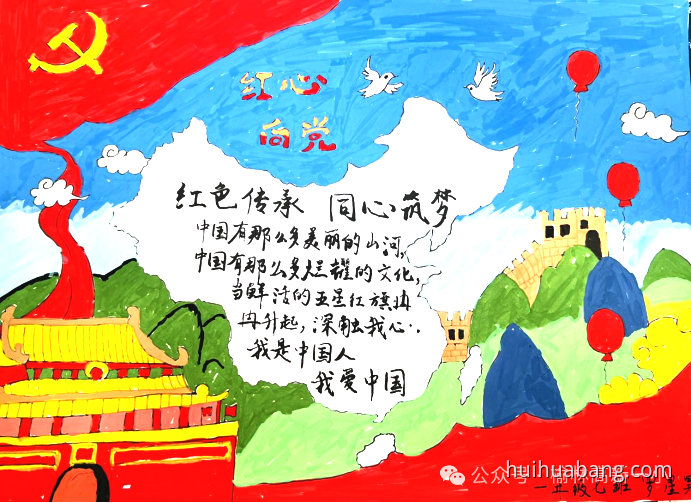 红心
向党
红色传承 同心筑梦
中国有那么多美丽的山河,
中国有那么多辉煌的文化,
当鲜活的五星红旗冉
冉升起,深触我心..
我是中国人
我爱中国
公众号
huihuabang.com
班